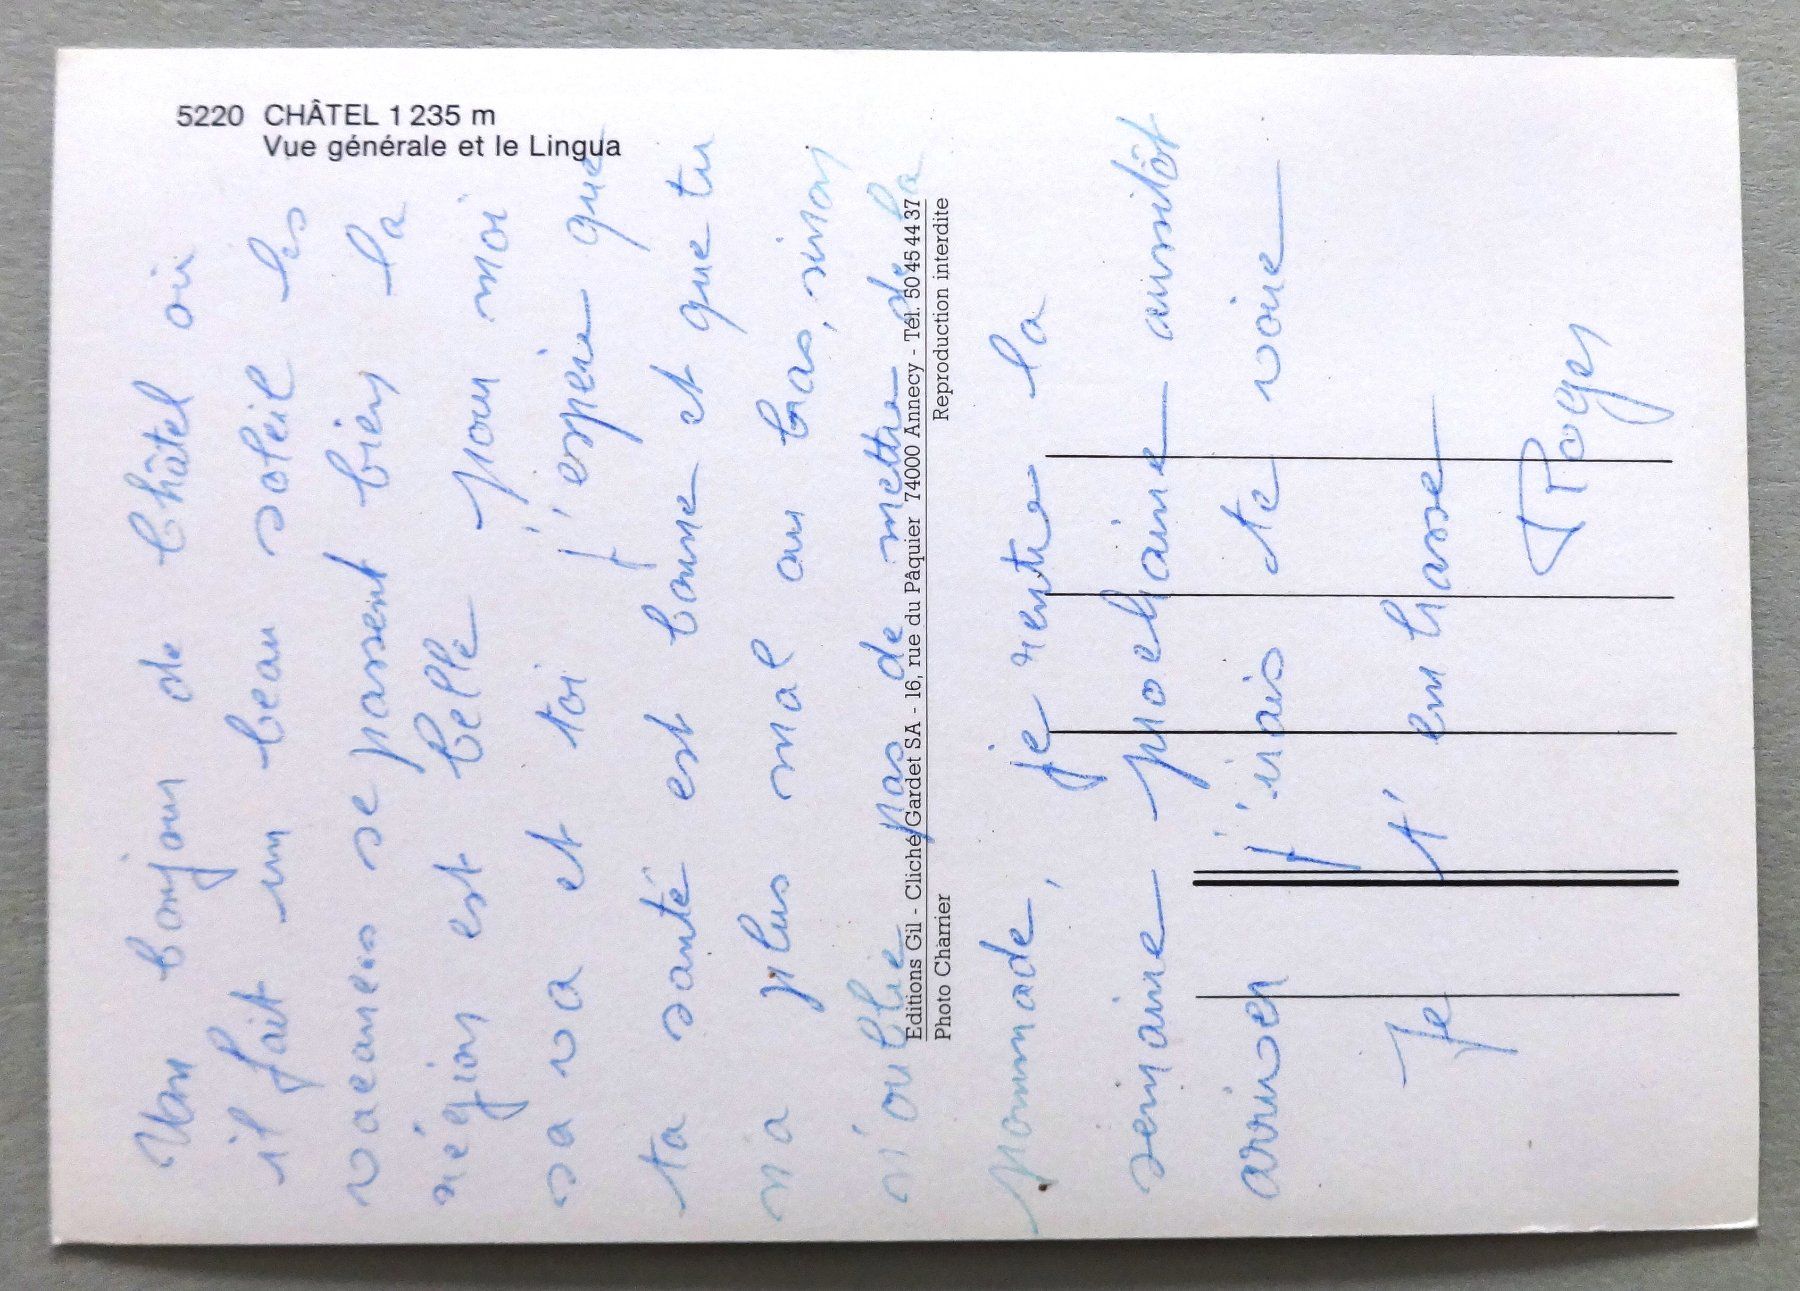 5220 CHÂTEL 1 235 m
Vue générale et le Lingua
Un bonjour de Châtel où
il fait un beau soleil les
vacances se passent bien la
région est belle pour moi
sa va et toi j'espère que
ta santé est bonne et que tu
n'a plus mal au bras, sinon
n'oublie pas de mettre de la
pommade, je rentre la
semaine prochaine aussitôt
arriver j'irais te voire
Je t'embrasse
Roger
Editions Gil - Cliché Gardet SA - 16, rue du Pâquier 74000 Annecy - Tél. 50 45 44 37
Photo Charrier Reproduction interdite